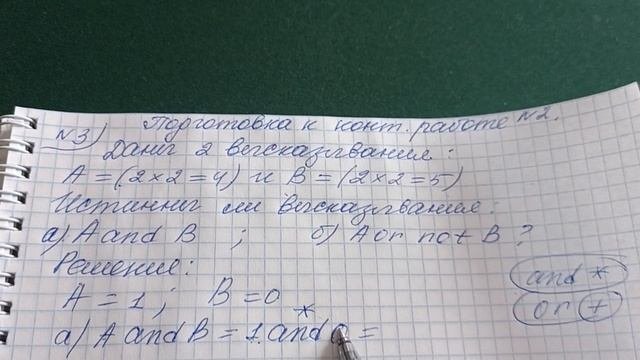 Подготовка к конт. работе №2.
№3)
Даны 2 высказывания:
A = (2×2=4) и B = (2×2=5)
Истинны ли высказывания:
а) A and B ; б) A or not B ?
Решение:
and *
A = 1 ; B = 0
or +
*
а) A and B = 1 and 0 =